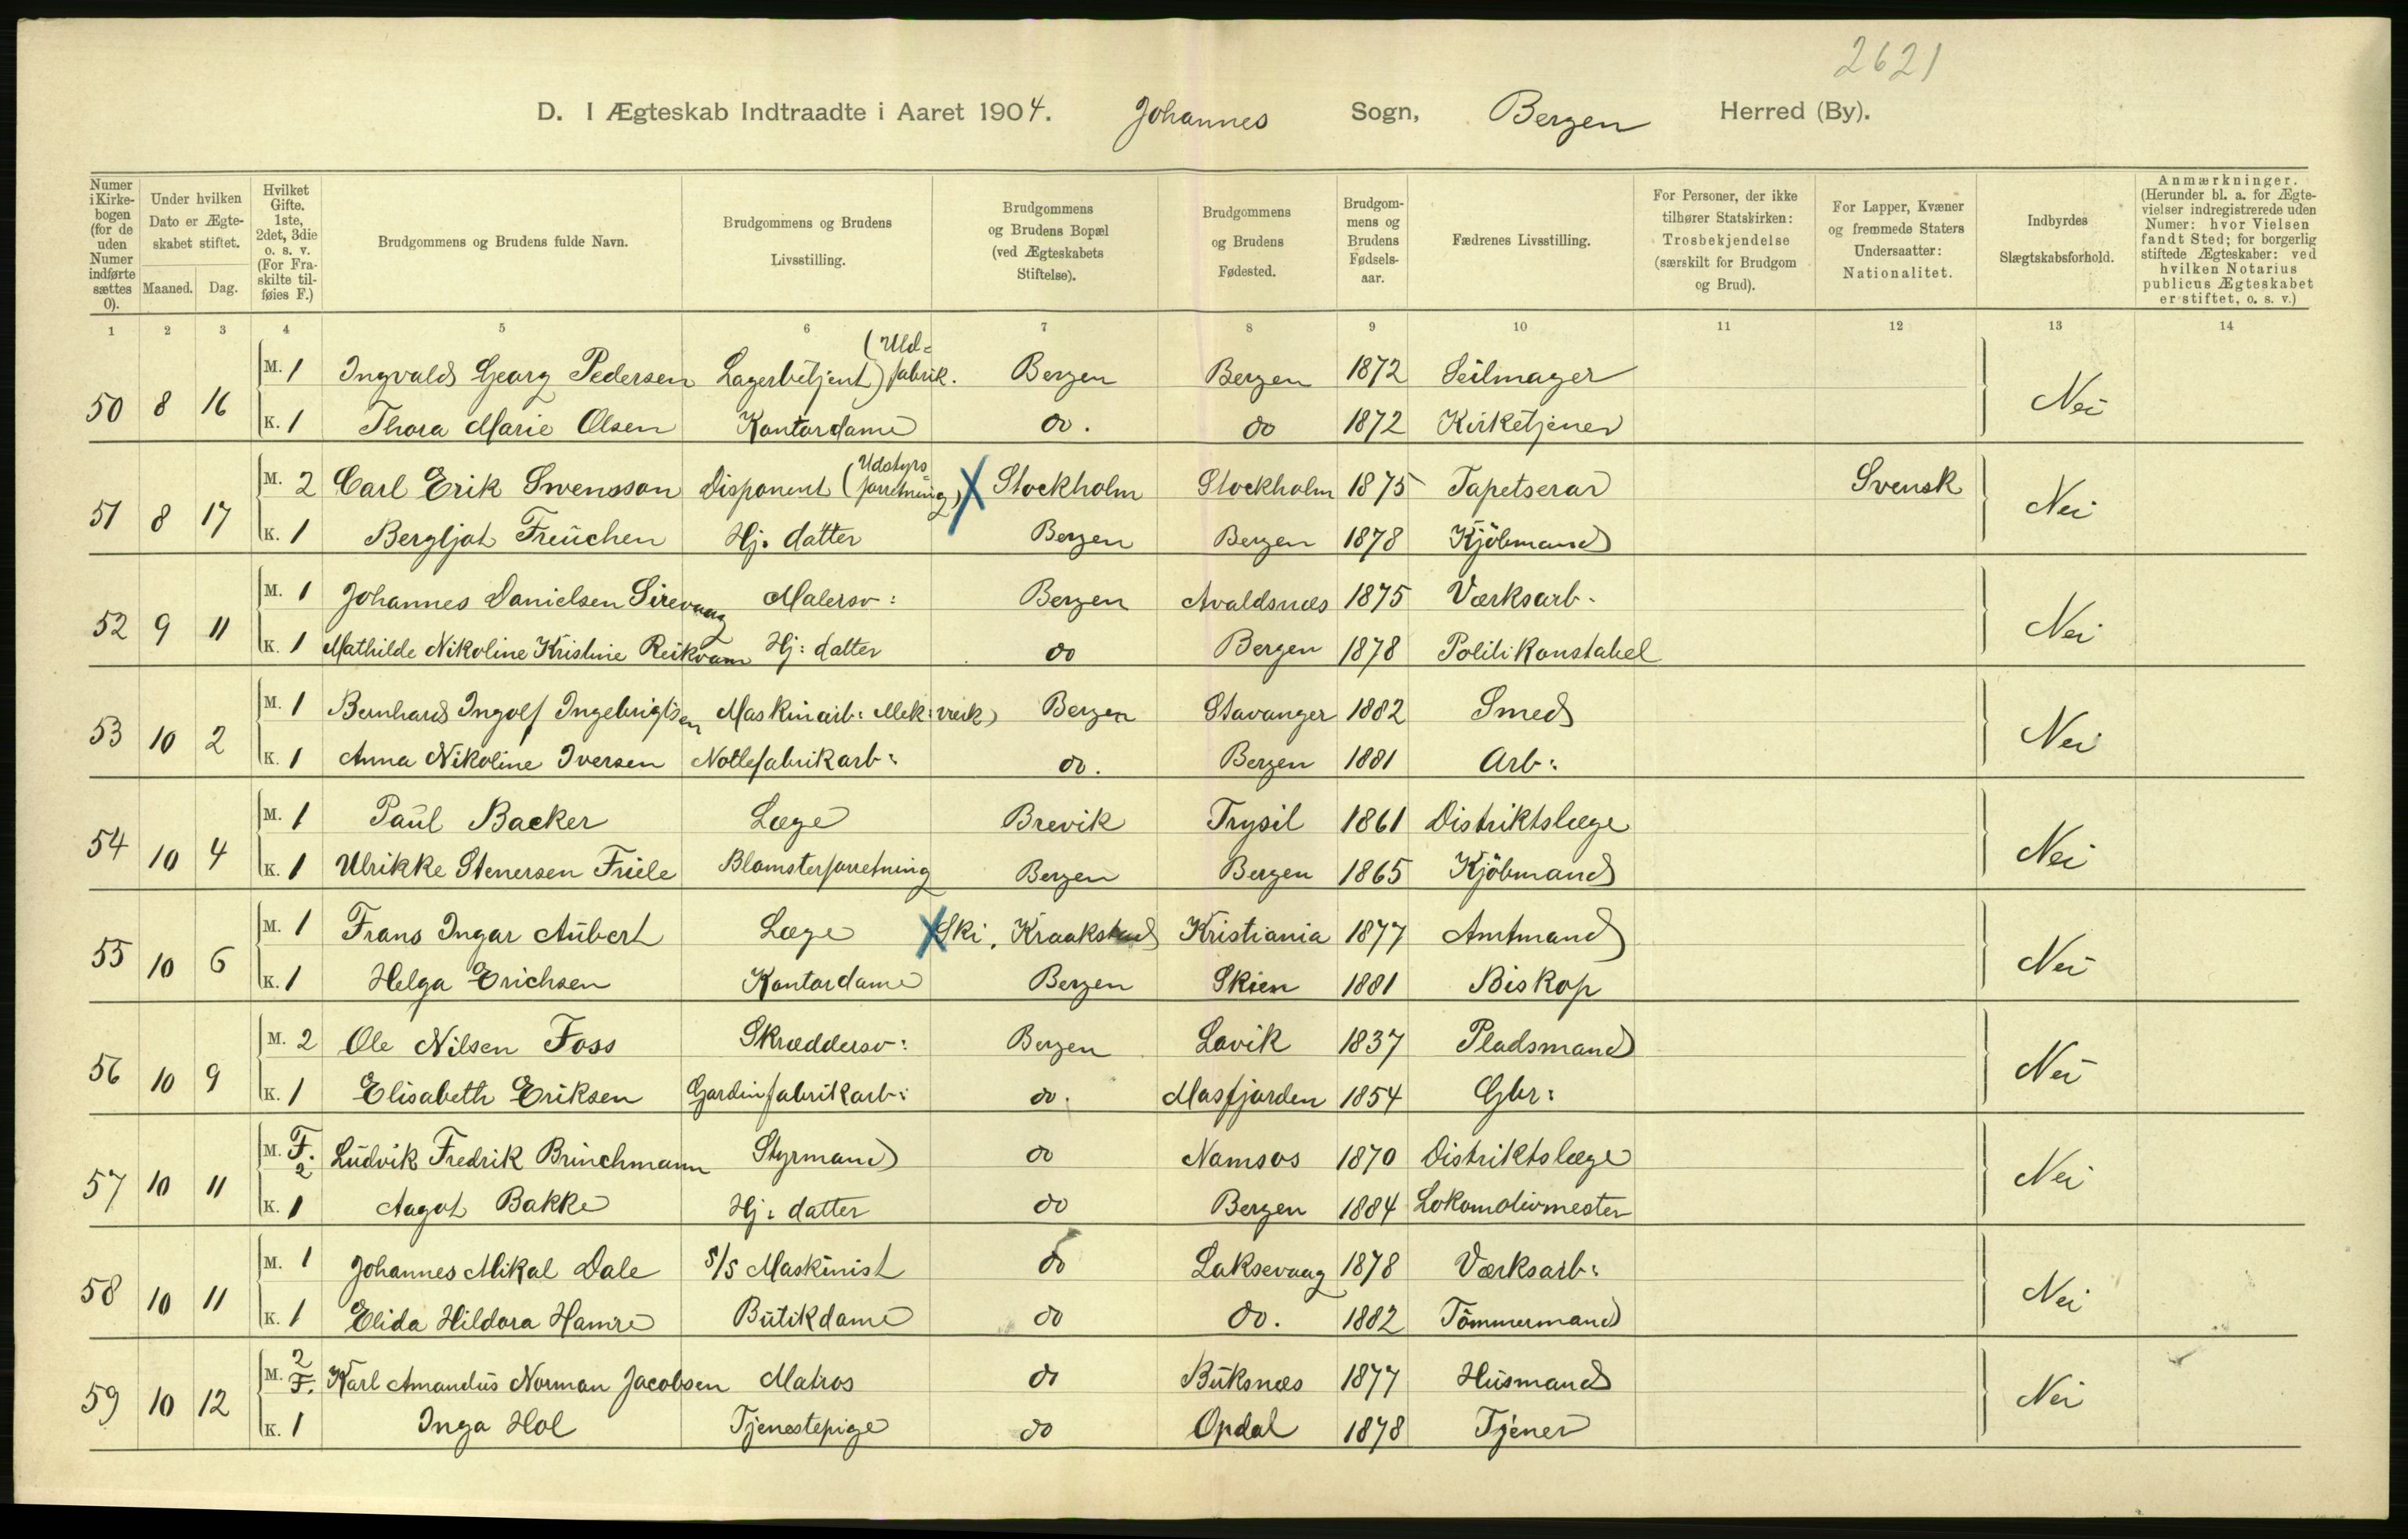 2621
D. I Ægteskab Indtraadte i Aaret 1904. Johannes Sogn, Bergen Herred (By).
Numer i Kirkebogen (for de uden Numer indførte sættes 0). | Under hvilken Dato er Ægteskabet stiftet. Maaned. Dag. | Hvilket Gifte. 1ste, 2det, 3die o. s. v. (For Fraskilte tilføies F.) | Brudgommens og Brudens fulde Navn. | Brudgommens og Brudens Livsstilling. | Brudgommens og Brudens Bopæl (ved Ægteskabets Stiftelse). | Brudgommens og Brudens Fødested. | Brudgommens og Brudens Fødselsaar. | Fædrenes Livsstilling. | For Personer, der ikke tilhører Statskirken: Trosbekjendelse (særskilt for Brudgom og Brud). | For Lapper, Kvæner og fremmede Staters Undersaatter: Nationalitet. | Indbyrdes Slægtskabsforhold. | Anmærkninger. (Herunder bl. a. for Ægtevielser indregistrerede uden Numer: hvor Vielsen fandt Sted; for borgerlig stiftede Ægteskaber: ved hvilken Notarius publicus Ægteskabet er stiftet, o. s. v.)
1 2 3 4 5 6 7 8 9 10 11 12 13 14
50 8 16 M. 1 Ingvald Georg Pedersen Lagerbetjent (Uldfabrik.) Bergen Bergen 1872 Seilmager Nei
K. 1 Thora Marie Olsen Kontordame do. do 1872 Kirketjener
51 8 17 M. 2 Carl Erik Swensson Disponent (Udstyrsforretning) X Stockholm Stockholm 1875 Tapetserar Svensk Nei
K. 1 Bergljot Freuchen Hj. datter Bergen Bergen 1878 Kjöbmand
52 9 11 M. 1 Johannes Danielsen Sirevaag Malersv: Bergen Avaldsnæs 1875 Værksarb. Nei
K. 1 Mathilde Nikoline Kristine Reikvam Hj: datter do Bergen 1878 Politikonstabel
53 10 2 M. 1 Bernhard Ingolf Ingebrigtsen Maskinarb: Mek: værk) Bergen Stavanger 1882 Smed Nei
K. 1 Anna Nikoline Iversen Notlefabrikarb: do. Bergen 1881 Arb:
54 10 4 M. 1 Paul Backer Læge Brevik Trysil 1861 Distriktslæge Nei
K. 1 Ulrikke Stenersen Friele Blomsterforretning Bergen Bergen 1865 Kjöbmand
55 10 6 M. 1 Frans Ingar Aubert Læge X Ski, Kraakstad Kristiania 1877 Amtmand Nei
K. 1 Helga Erichsen Kontordame Bergen Skien 1881 Biskop
56 10 9 M. 2 Ole Nilsen Foss Skræddersv: Bergen Lavik 1837 Pladsmand Nei
K. 1 Elisabeth Eriksen Gardinfabrikarb: do. Masfjorden 1854 Gbr:
57 10 11 M. F. 2 Ludvik Fredrik Brinchmann Styrmand do Namsos 1870 Distriktslæge Nei
K. 1 Aagot Bakke Hj: datter do Bergen 1884 Lokomotivmester
58 10 11 M. 1 Johannes Mikal Dale S/S Maskinist do Laksevaag 1878 Værksarb: Nei
K. 1 Elida Hildora Hamre Butikdame do do. 1882 Tömmermand
59 10 12 M. 2 F. Karl Amandus Norman Jacobsen Matros do Buksnæs 1877 Husmand Nei
K. 1 Inga Hol Tjenestepige do Opdal 1878 Tjener